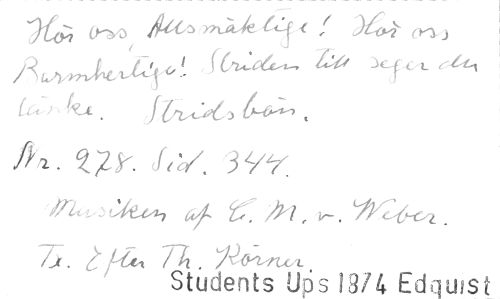 Hör oss, Allsmäktige! Hör oss
Barmhertige! Striden till seger du
länke. Stridsbön.
Nr. 278. Sid. 344.
Musiken af C. M. v. Weber.
Tx. Efter Th. Körner.
Students Ups 1874 Edquist